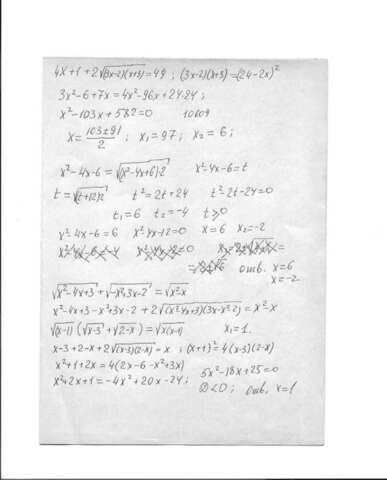 4x+1+2√(3x-2)(x+3)=49 ; (3x-2)(x+3)=(24-2x)²
3x²-6+7x=4x²-96x+24·24;
x²-103x+582=0 10609
x= 103±91/2 ; x₁=97; x₂=6;
x²-4x-6=√(x²-4x+6)·2 x²-4x-6=t
t=√(t+12)2 t²=2t+24 t²-2t-24=0
t₁=6 t₂=-4 t⩾0
x²-4x-6=6 x²-4x-12=0 x=6 x₂=-2
отв. x=6
x=-2
√x²-4x+3+√-x²+3x-2=√x²-x
x²-4x+3-x²+3x-2+2√(x²-4x+3)(3x-x²-2)=x²-x
√(x-1)(√x-3+√2-x)=√x(x-1) x₁=1.
x-3+2-x+2√(x-3)(2-x)=x ; (x+1)²=4(x-3)(2-x)
x²+1+2x=4(2x-6-x²+3x) 5x²-18x+25=0
x²+2x+1=-4x²+20x-24; D<0; отв. x=1